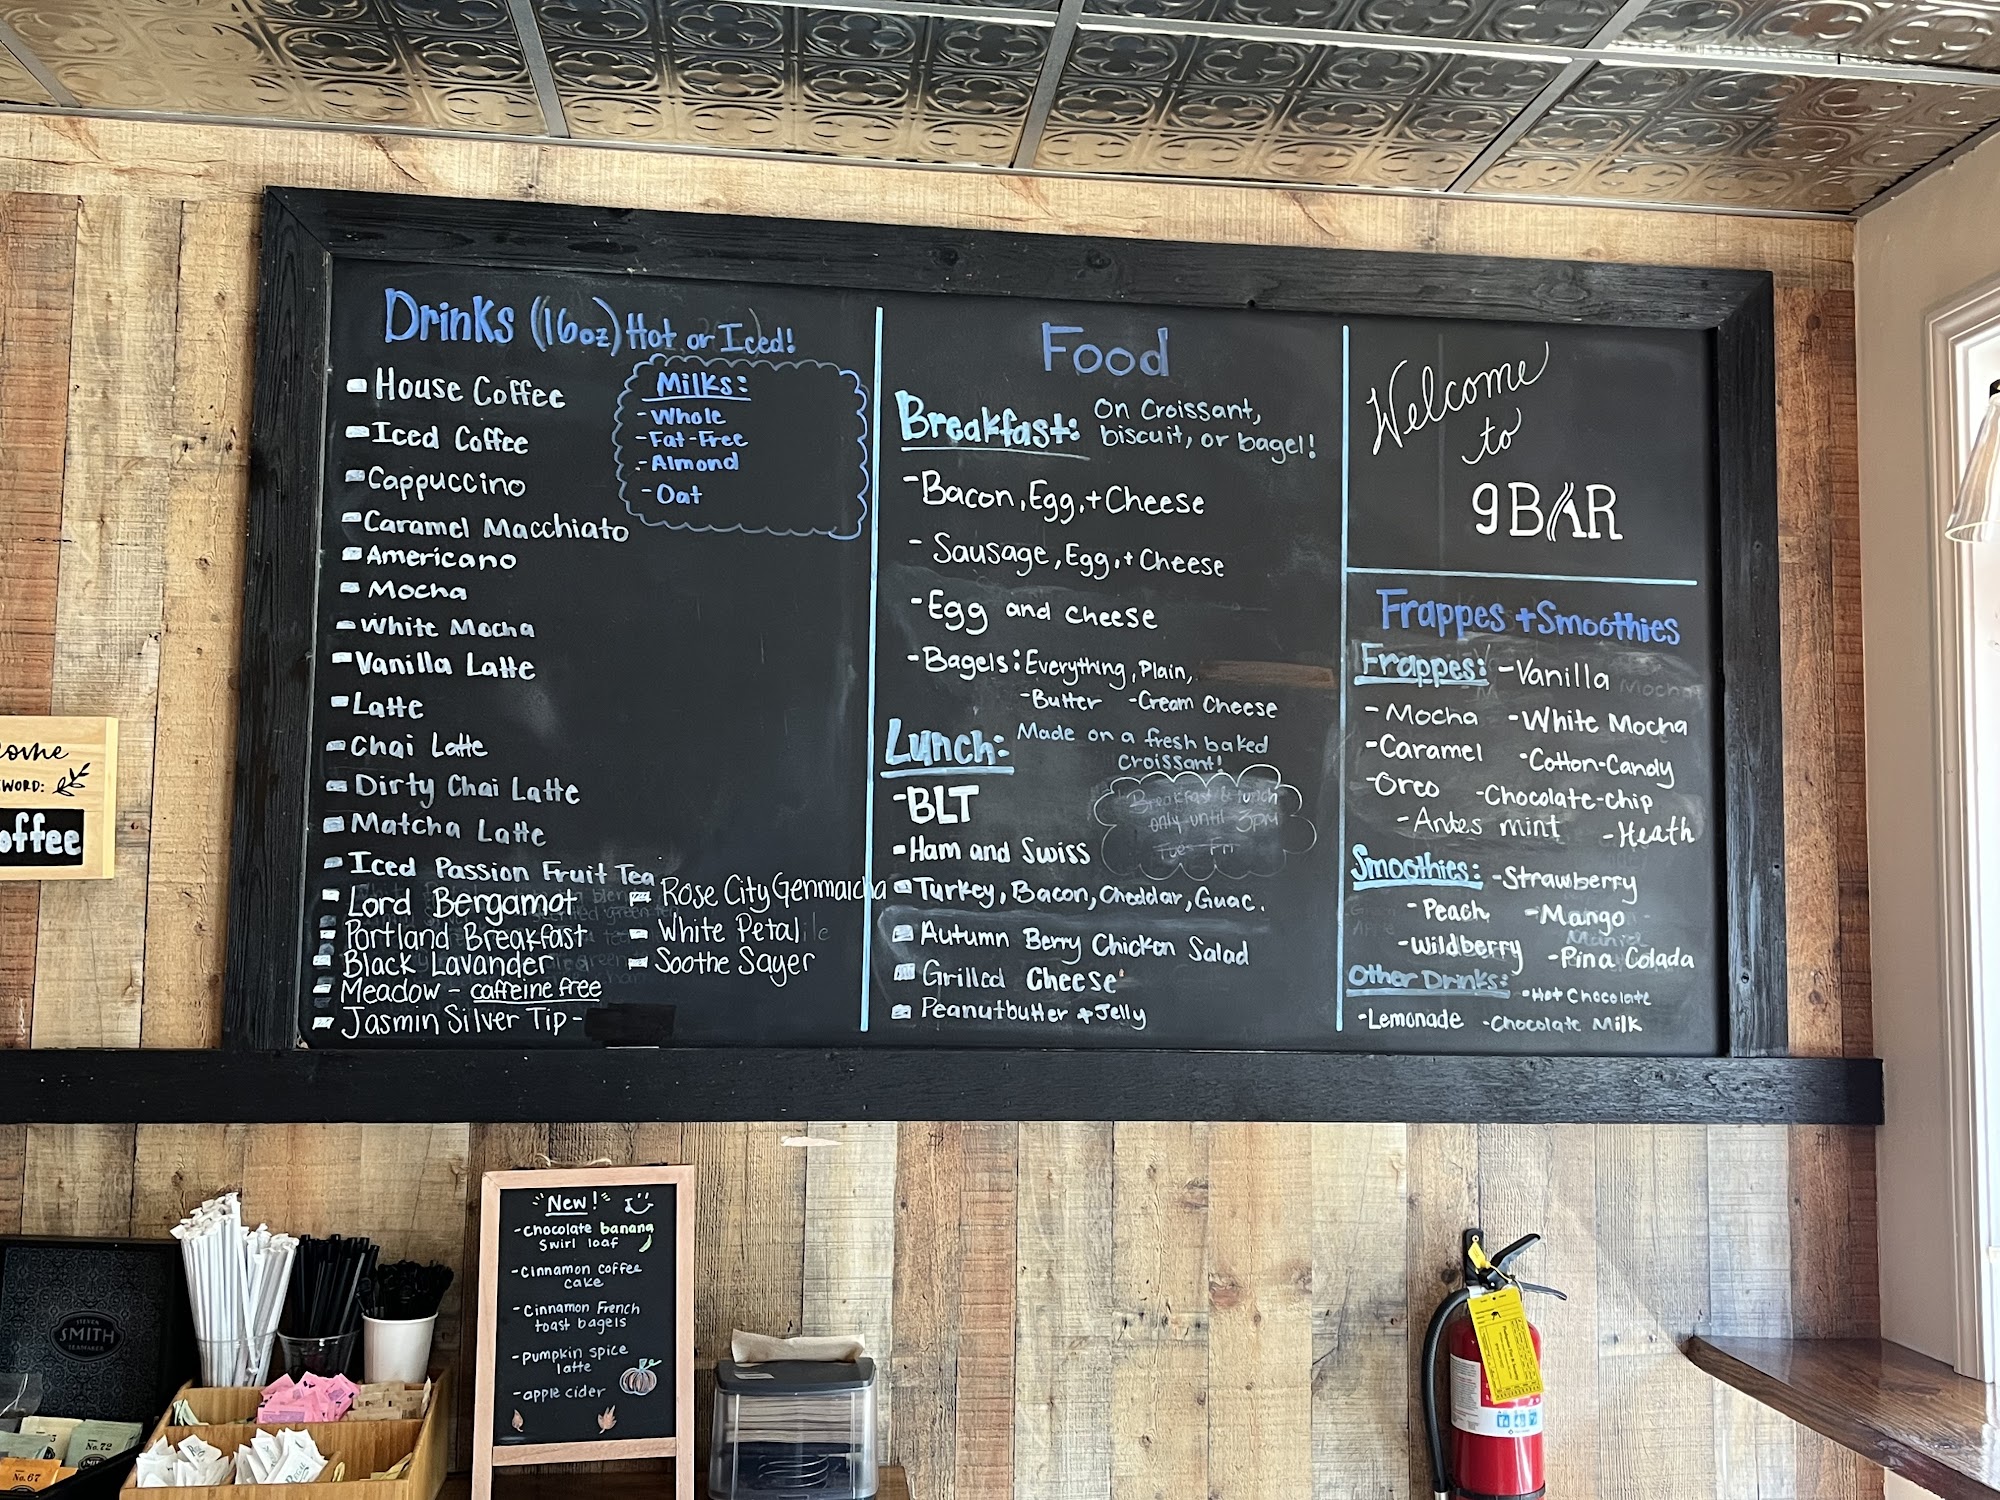 Drinks (16oz) Hot or Iced!
House Coffee
Iced Coffee
Cappuccino
Caramel Macchiato
Americano
Mocha
White Mocha
Vanilla Latte
Latte
Chai Latte
Dirty Chai Latte
Matcha Latte
Iced Passion Fruit Tea
Lord Bergamot
Portland Breakfast
Black Lavander
Meadow - caffeine free
Jasmin Silver Tip -
Rose City Genmaicha
White Petal
Soothe Sayer
Milks:
- Whole
- Fat-Free
- Almond
- Oat
Food
Breakfast: On Croissant,
biscuit, or bagel!
- Bacon, Egg, + Cheese
- Sausage, Egg, + Cheese
- Egg and cheese
- Bagels: Everything, Plain,
- Butter - Cream Cheese
Lunch: Made on a fresh baked
croissant!
- BLT
- Ham and Swiss
Turkey, Bacon, Cheddar, Guac.
Autumn Berry Chicken Salad
Grilled Cheese
Peanutbutter + Jelly
Breakfast & lunch
only until 3pm
Tues - Fri
Welcome
to
9BAR
Frappes + Smoothies
Frappes: - Vanilla
- Mocha - White Mocha
- Caramel - Cotton-Candy
- Oreo - Chocolate-chip
- Andes mint - Heath
Smoothies: - Strawberry
- Peach - Mango
- Wildberry - Pina Colada
Other Drinks: - Hot Chocolate
- Lemonade - Chocolate Milk
ome
WORD:
offee
New!
- chocolate banana
swirl loaf
- cinnamon coffee
cake
- Cinnamon French
toast bagels
- pumpkin spice
latte
- apple cider
STEVEN
SMITH
TEAMAKER
No. 72
No. 67